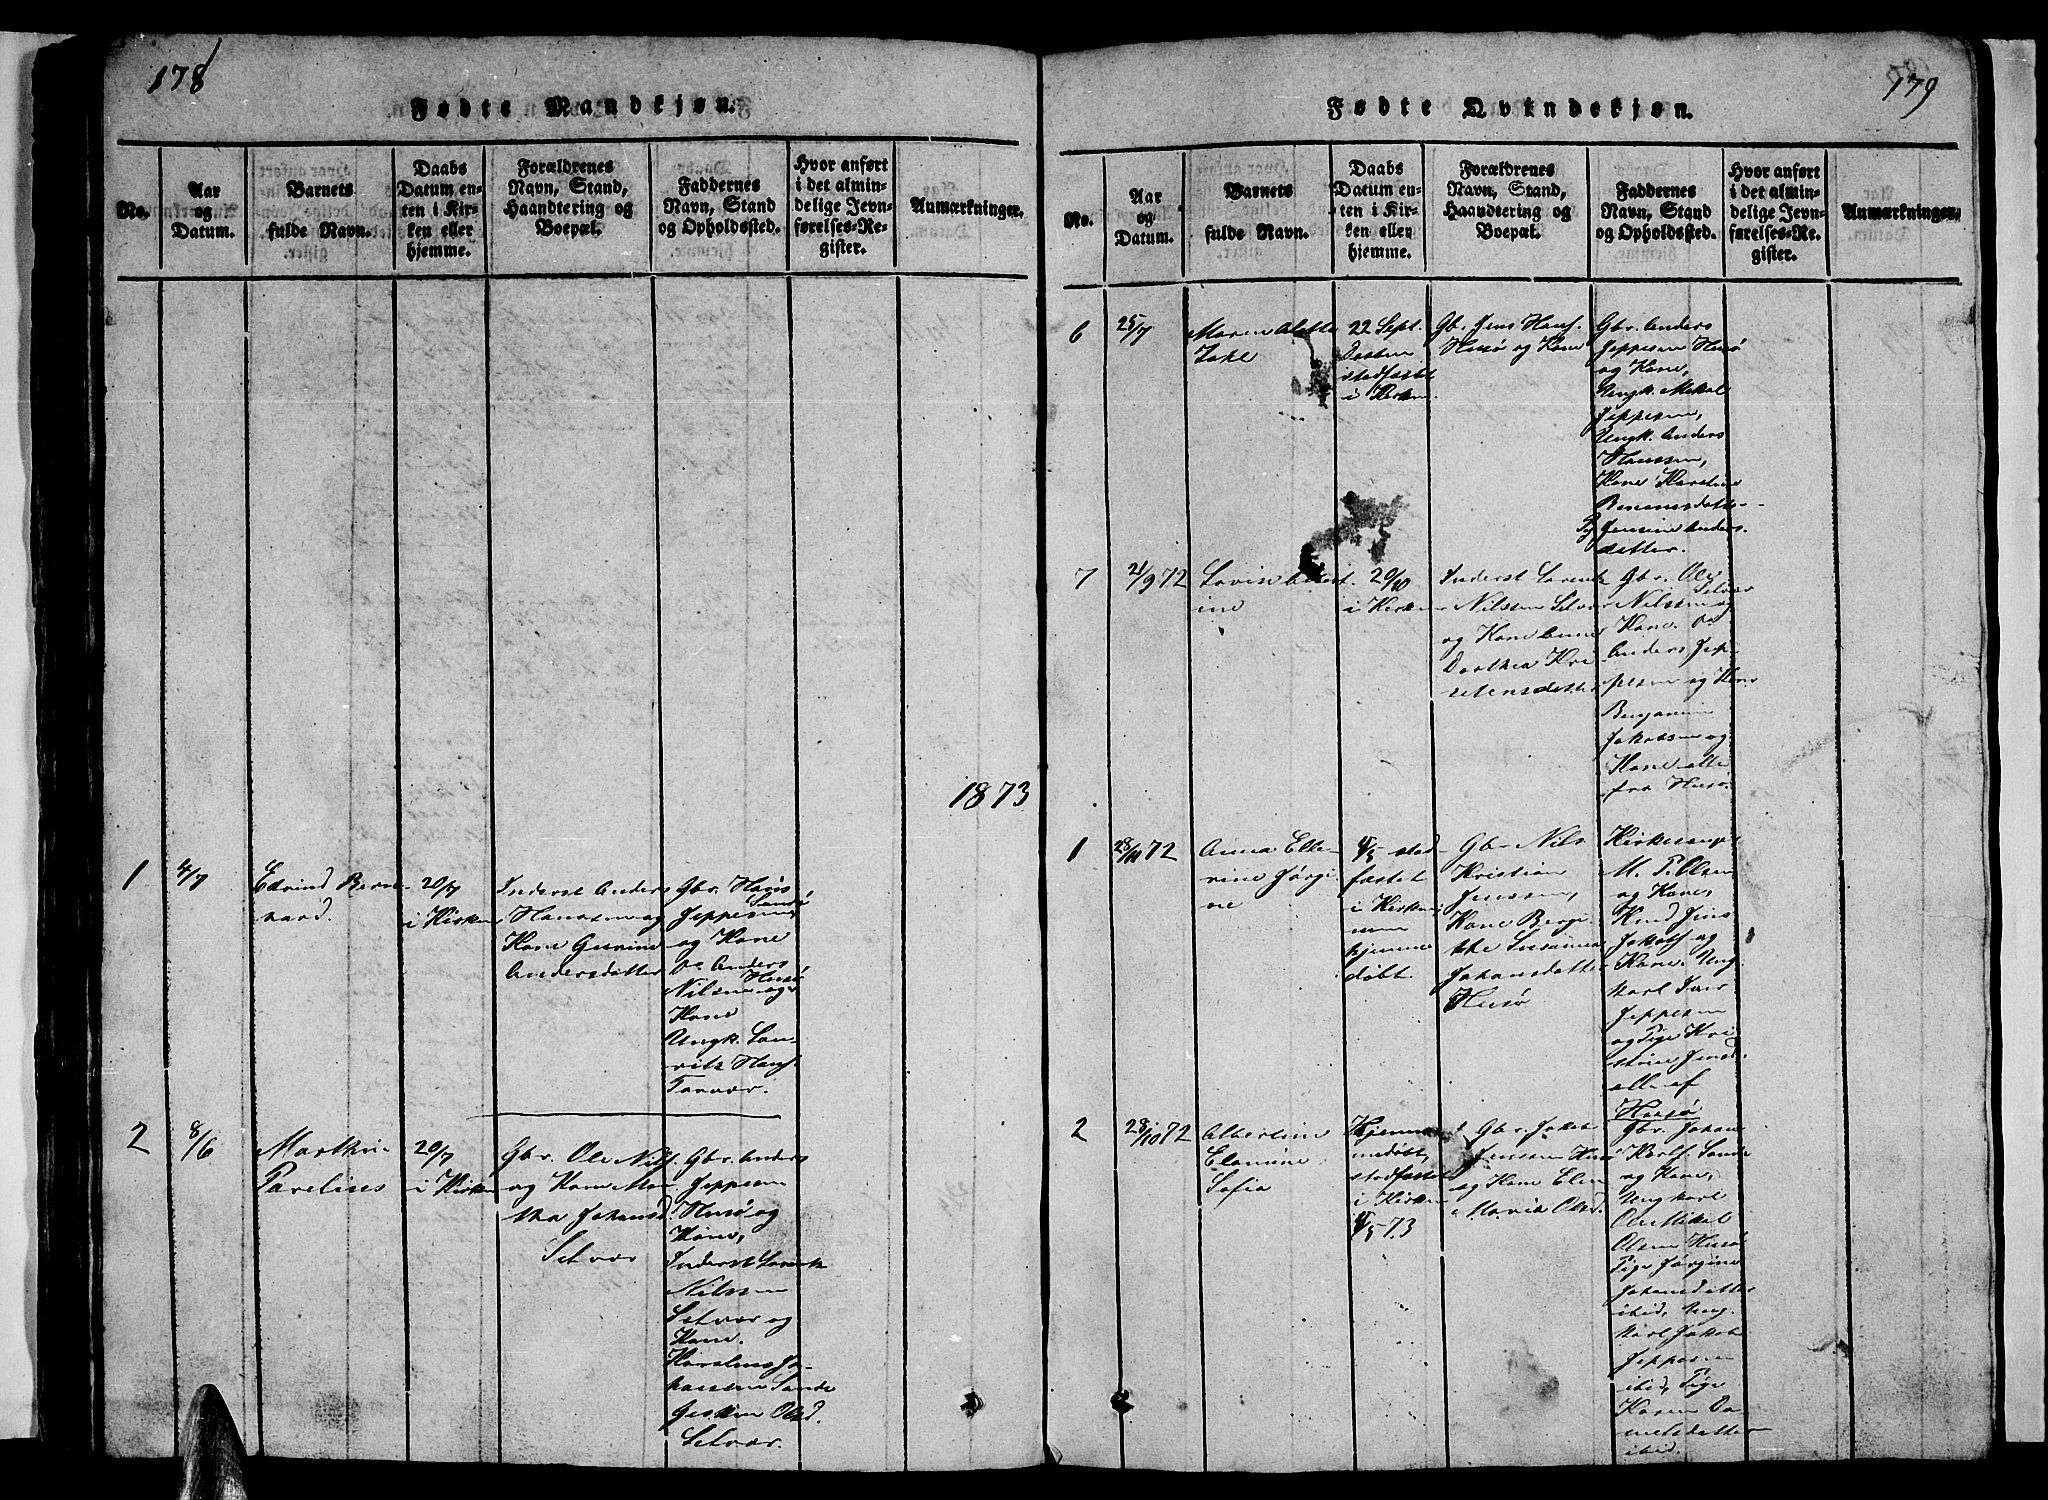 178
Fødte Mandkjøn.
No.
Aar
og
Datum.
Barnets
fulde Navn.
Daabs
Datum en-
ten i Kir-
ken eller
hjemme.
Forældrenes
Navn, Stand,
Haandtering og
Boepæl.
Faddernes
Navn, Stand
og Opholdssted.
Hvor anført
i det almin-
delige Jevn-
førelses-Re-
gister.
Anmærkninger.
1873
1
4/7
Edvind Bern-
hard.
20/7
i Kirken
Inderst Anders
Hanssen og
Kone
Andersdatter
Gbr. Hans
Jeppesen, Sandø
og Kone
do Anders
Nilsen Husø og
Kone
Ungk. Lau-
rits Hansf.
Torvær.
2
8/6
Marthin
Parelius
20/7
i Kirken
Gbr. Ole Nilsf.
og Kone Mar-
tha Johansd.
Selvær
Gbr. Anders
Jeppesen
Husø og
Kone,
Inderst Lorents
Nilssen
Selvær og
Kone.
Karelius Jo-
hanssen Sande
Olsd.
Selvær.
179
Fødte Qvindekjøn.
No.
Aar
og
Datum.
Barnets
fulde Navn.
Daabs
Datum en-
ten i Kir-
ken eller
hjemme.
Forældrenes
Navn, Stand,
Haandtering og
Boepæl.
Faddernes
Navn, Stand
og Opholdssted.
Hvor anført
i det almin-
delige Jevn-
førelses-Re-
gister.
Anmærkninger.
6
25/7
Maren Alette
22 Sept.
Daaben
stadfæstet
i Kirken.
Gb. Jens Hansf.
Husø og Kone
Gbr. Anders
Jeppesen Husø
og Kone,
Ungk. Mikal
Jeppesen,
Ungk. Anders
Hanssen,
Kone
Pg Jensine Anders-
datter.
7
21/9 72
Lovise Albert
ine
20/10
i Kirken
Inderst Lorents
Nilssen Selvær
og Kone Anne
Dorthea Kri-
stensdatter
Gbr. Ole
Nilssen Selvær og
Kone. do
Anders Jep-
pesen og Kone
Benjamin
Jakobsen og
Kone alle
fra Husø.
1
28/10 72
Anna Elle-
vine Jørgi-
ne
4/5 stad-
fæstet
i Kirken,
hjemme
døbt.
Gbr. Nils
Kristian
Jenssen,
Kone Bergi-
tthe Susanna
Johansdatter
Husø
Kirkesanger
M. P. Olsen
og Kone,
Knud Jens
Jakobsf og
Kone. Ung-
karl
Jeppesen
og Pige Kri-
stine Jensd.
alle af
Husø
2
28/10 72
Albertine
Elamine
Sofia
Hjem-
medøbt,
stadfæstet
i Kirken
4/5 73
Gbr. Jakob
Jenssen Husø
og Kone Elen
Maria Olsd.
Gbr. Johan
Karlf. Sande
og Kone,
Ungkarl
Ole Mikal
Olsen Husø
Pige Jørgine
Johansdatter
ibid, Ung-
karl Jakob
Jeppesen
ibid, Pige
Karen Da-
nielsdatter
ibid.